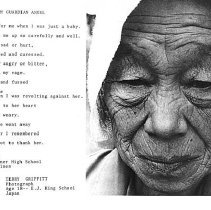 GUARDIAN ANGEL
for me when I was just a baby.
me up so carefully and well.
or hurt,
and caressed.
angry or bitter,
my rage.
and fumed
I was revolting against her.
so her heart
weary.
went away
I remembered
to thank her.
High School
TERRY GRIFFITT
Photograph
Age 18-- E.J. King School
Japan